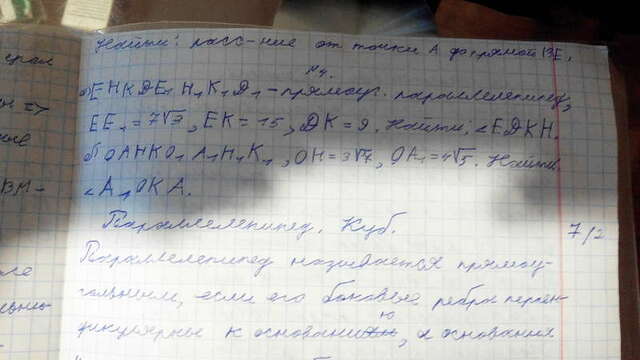 Найти: расс-ние от точки A до прямой BE.
№4.
а) EHKDE₁H₁K₁D₁ - прямоуг. параллелепипед,
EE₁ = 7√3, EK = 15, DK = 9. Найти: ∠EDKH.
б) OAHKO₁A₁H₁K₁, OH = 3√7, OA₁ = 4√5. Найти
∠A₁OKA.
Параллелепипед. Куб.
7/2
Параллелепипед называется прямоу-
гольным, если его боковые ребра перпен-
дикулярны к основанию, а основания
ВМ-